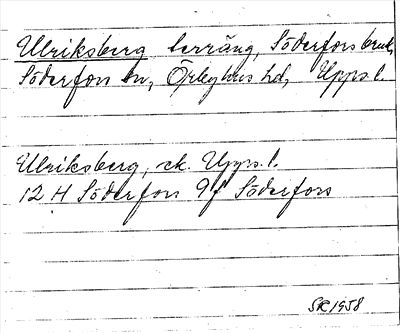 Ulriksberg terräng, Söderfors bruk,
Söderfors sn, Örbyhus hd, Upps. l.
Ulriksberg, ek. Upps. l.
12 H Söderfors 9f Söderfors
SK 1958